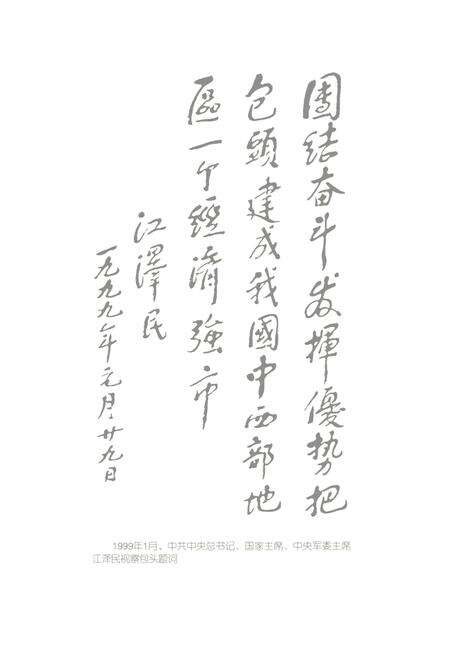 團结奋斗发揮優势把
包頭建成我國中西部地
區一个經濟強市
江澤民
一九九九年元月廿九日
1999年1月，中共中央总书记、国家主席、中央军委主席
江泽民视察包头题词